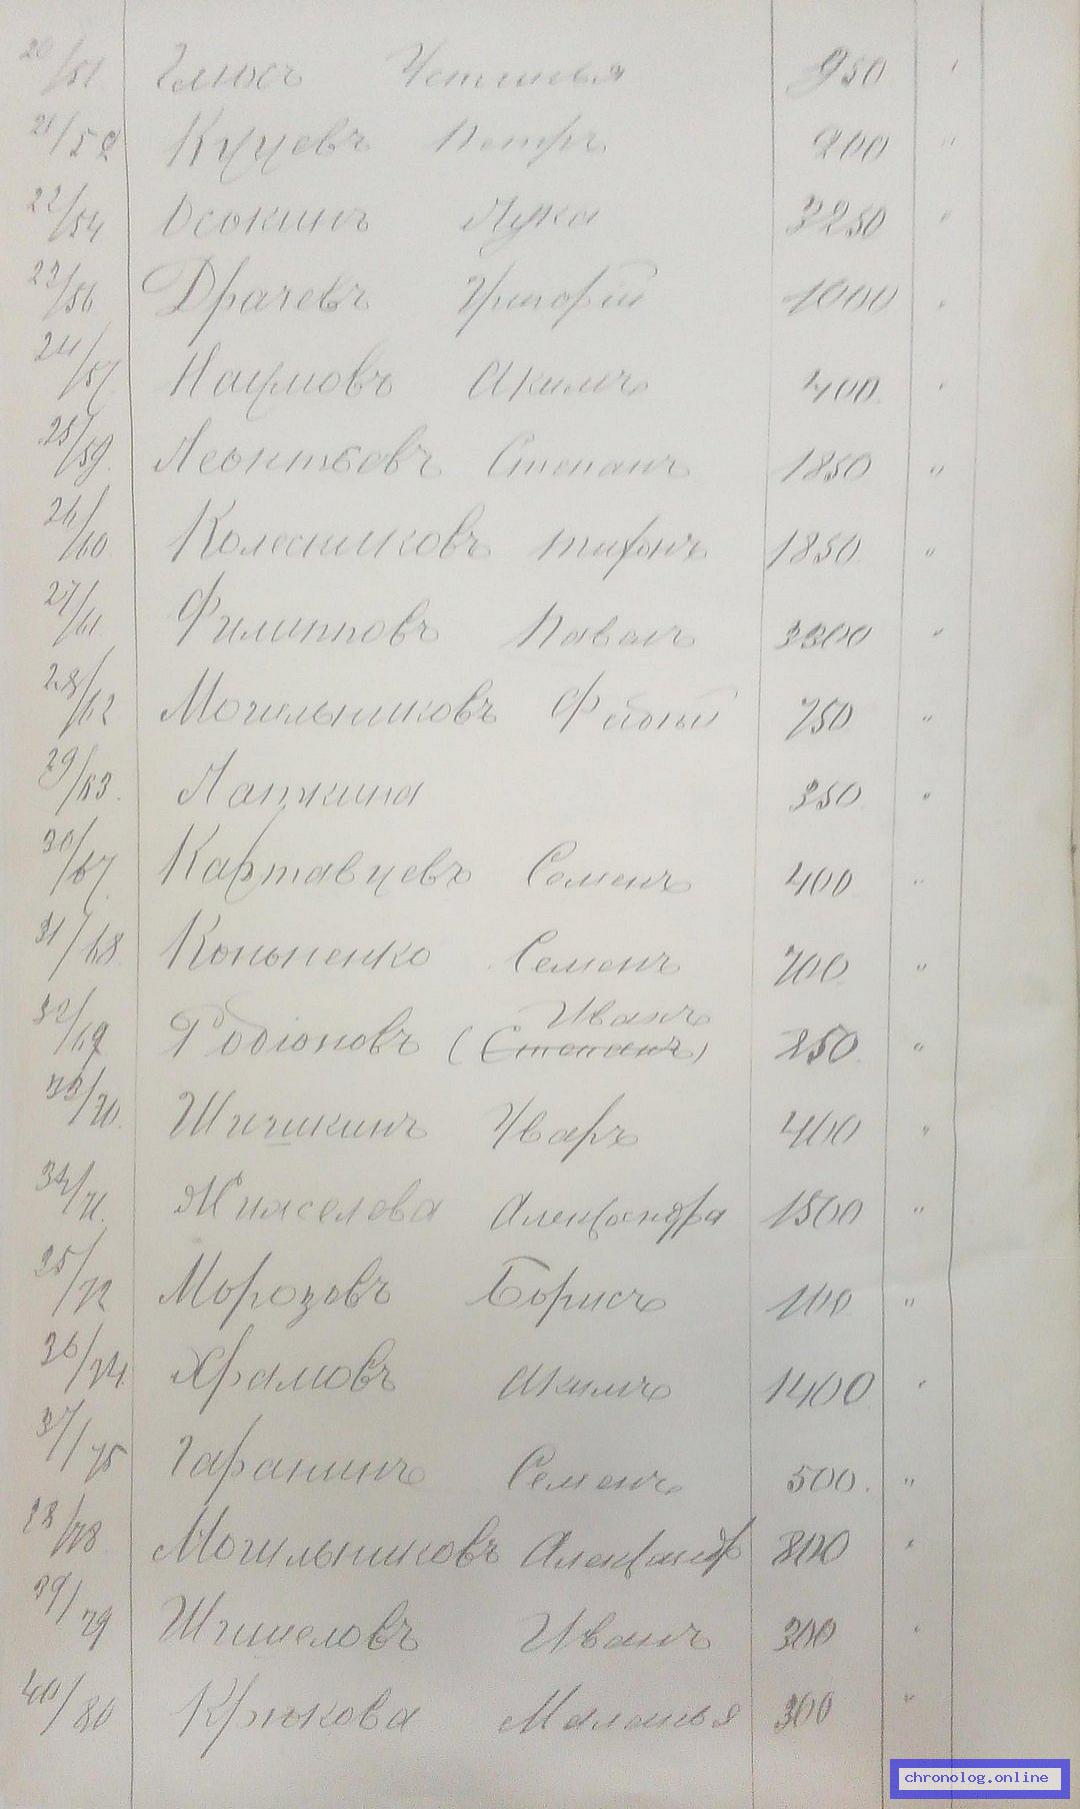 20/51 Глюсъ Устинья 950 "
21/52 Куцевъ Петръ 200 "
22/54 Осокинъ Лука 3250 "
23/56 Драчевъ Григорій 1000 "
24/57 Наумовъ Акимъ 400 "
25/59 Леонтьевъ Степанъ 1850 "
26/60 Колесниковъ Тифонъ 1850 "
27/61 Филипповъ Павелъ 3300 "
28/62 Могильниковъ 750 "
29/63 Латкина 350 "
30/67 Картавцевъ Семенъ 400 "
31/68 Кононенко Семенъ 700 "
Иванъ
32/69 Родіоновъ (Степанъ) 250 "
33/70 Шишкинъ Уваръ 400 "
34/71 Александра 1500 "
35/72 Морозовъ Борисъ 100 "
36/74 Храмовъ Акимъ 1400 "
37/75 Гаранинъ Семенъ 500 "
38/78 Могильниковъ Александръ 800 "
39/79 Иванъ 300 "
40/80 Крюкова Маланья 300 "
chronolog.online